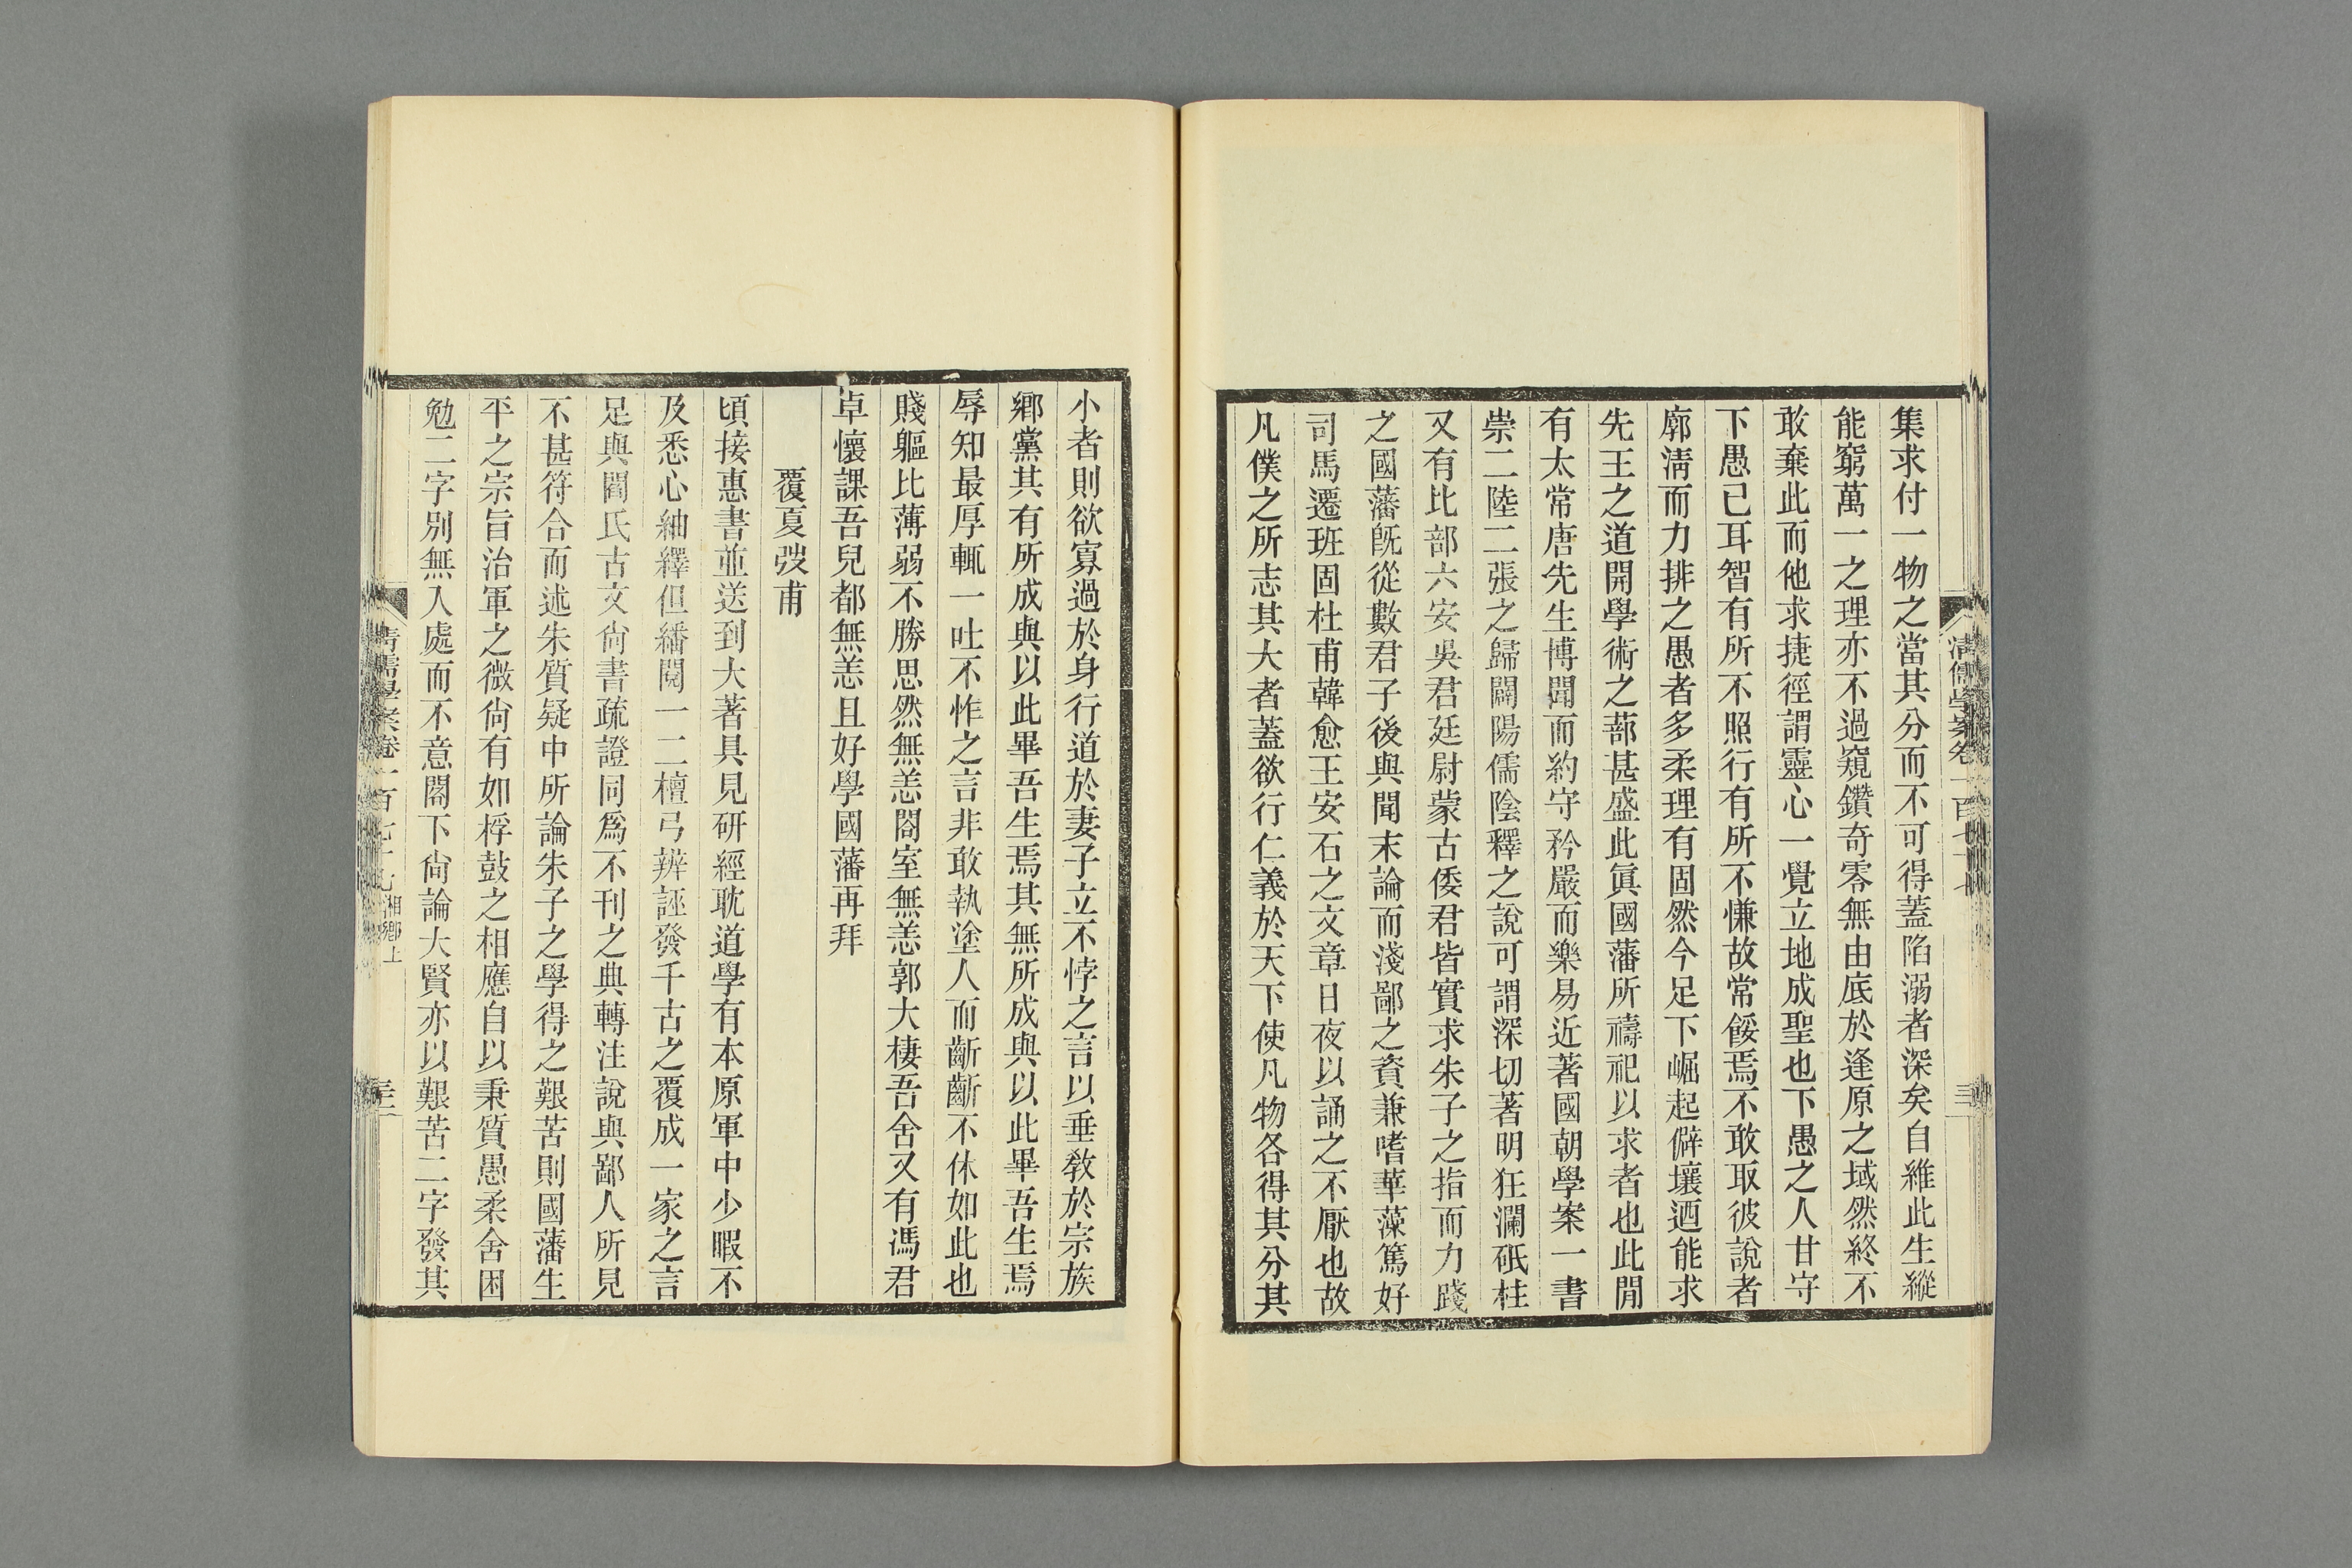 集求付一物之當其分而不可得蓋陷溺者深矣自維此生縱
能窮萬一之理亦不過窺鑽奇零無由底於逢原之域然終不
敢棄此而他求捷徑謂靈心一覺立地成聖也下愚之人甘守
下愚已耳智有所不照行有所不慊故常餒焉不敢取彼說者
廓淸而力排之愚者多柔理有固然今足下崛起僻壤迺能求
先王之道開學術之蔀甚盛此眞國藩所禱祀以求者也此閒
有太常唐先生博聞而約守矜嚴而樂易近著國朝學案一書
崇二陸二張之歸闢陽儒陰釋之說可謂深切著明狂瀾砥柱
又有比部六安吳君廷尉蒙古倭君皆實求朱子之指而力踐
之國藩旣從數君子後與聞末論而淺鄙之資兼嗜華藻篤好
司馬遷班固杜甫韓愈王安石之文章日夜以誦之不厭也故
凡僕之所志其大者蓋欲行仁義於天下使凡物各得其分其
小者則欲寡過於身行道於妻子立不悖之言以垂敎於宗族
鄉黨其有所成與以此畢吾生焉其無所成與以此畢吾生焉
辱知最厚輒一吐不怍之言非敢執塗人而齗齗不休如此也
賤軀比薄弱不勝思然無恙閤室無恙郭大棲吾舍又有馮君
卓懷課吾兒都無恙且好學國藩再拜
覆夏弢甫
頃接惠書並送到大著具見研經耽道學有本原軍中少暇不
及悉心紬繹但繙閱一二檀弓辨誣發千古之覆成一家之言
足與閻氏古文尙書疏證同爲不刊之典轉注說與鄙人所見
不甚符合而述朱質疑中所論朱子之學得之艱苦則國藩生
平之宗旨治軍之微尙有如桴鼓之相應自以秉質愚柔舍困
勉二字別無入處而不意閣下尙論大賢亦以艱苦二字發其
淸儒學案卷一百七十七 湘鄉上